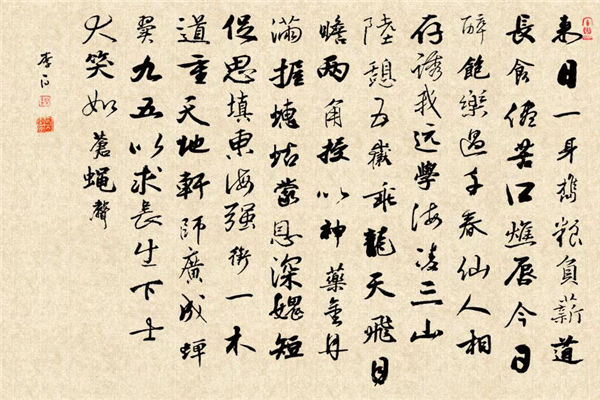 来日一身攜粮負薪道
長食儘苦口燋唇今日
醉飽樂過千春仙人相
存誘我远學海凌三山
陸憩五嶽乘龍天飛目
瞻兩角授以神藥金丹
滿握蟪蛄蒙恩深媿短
促思填東海强銜一木
道重天地軒師廣成蟬
翼九五以求長生下士
大笑如蒼蝿聲
李白